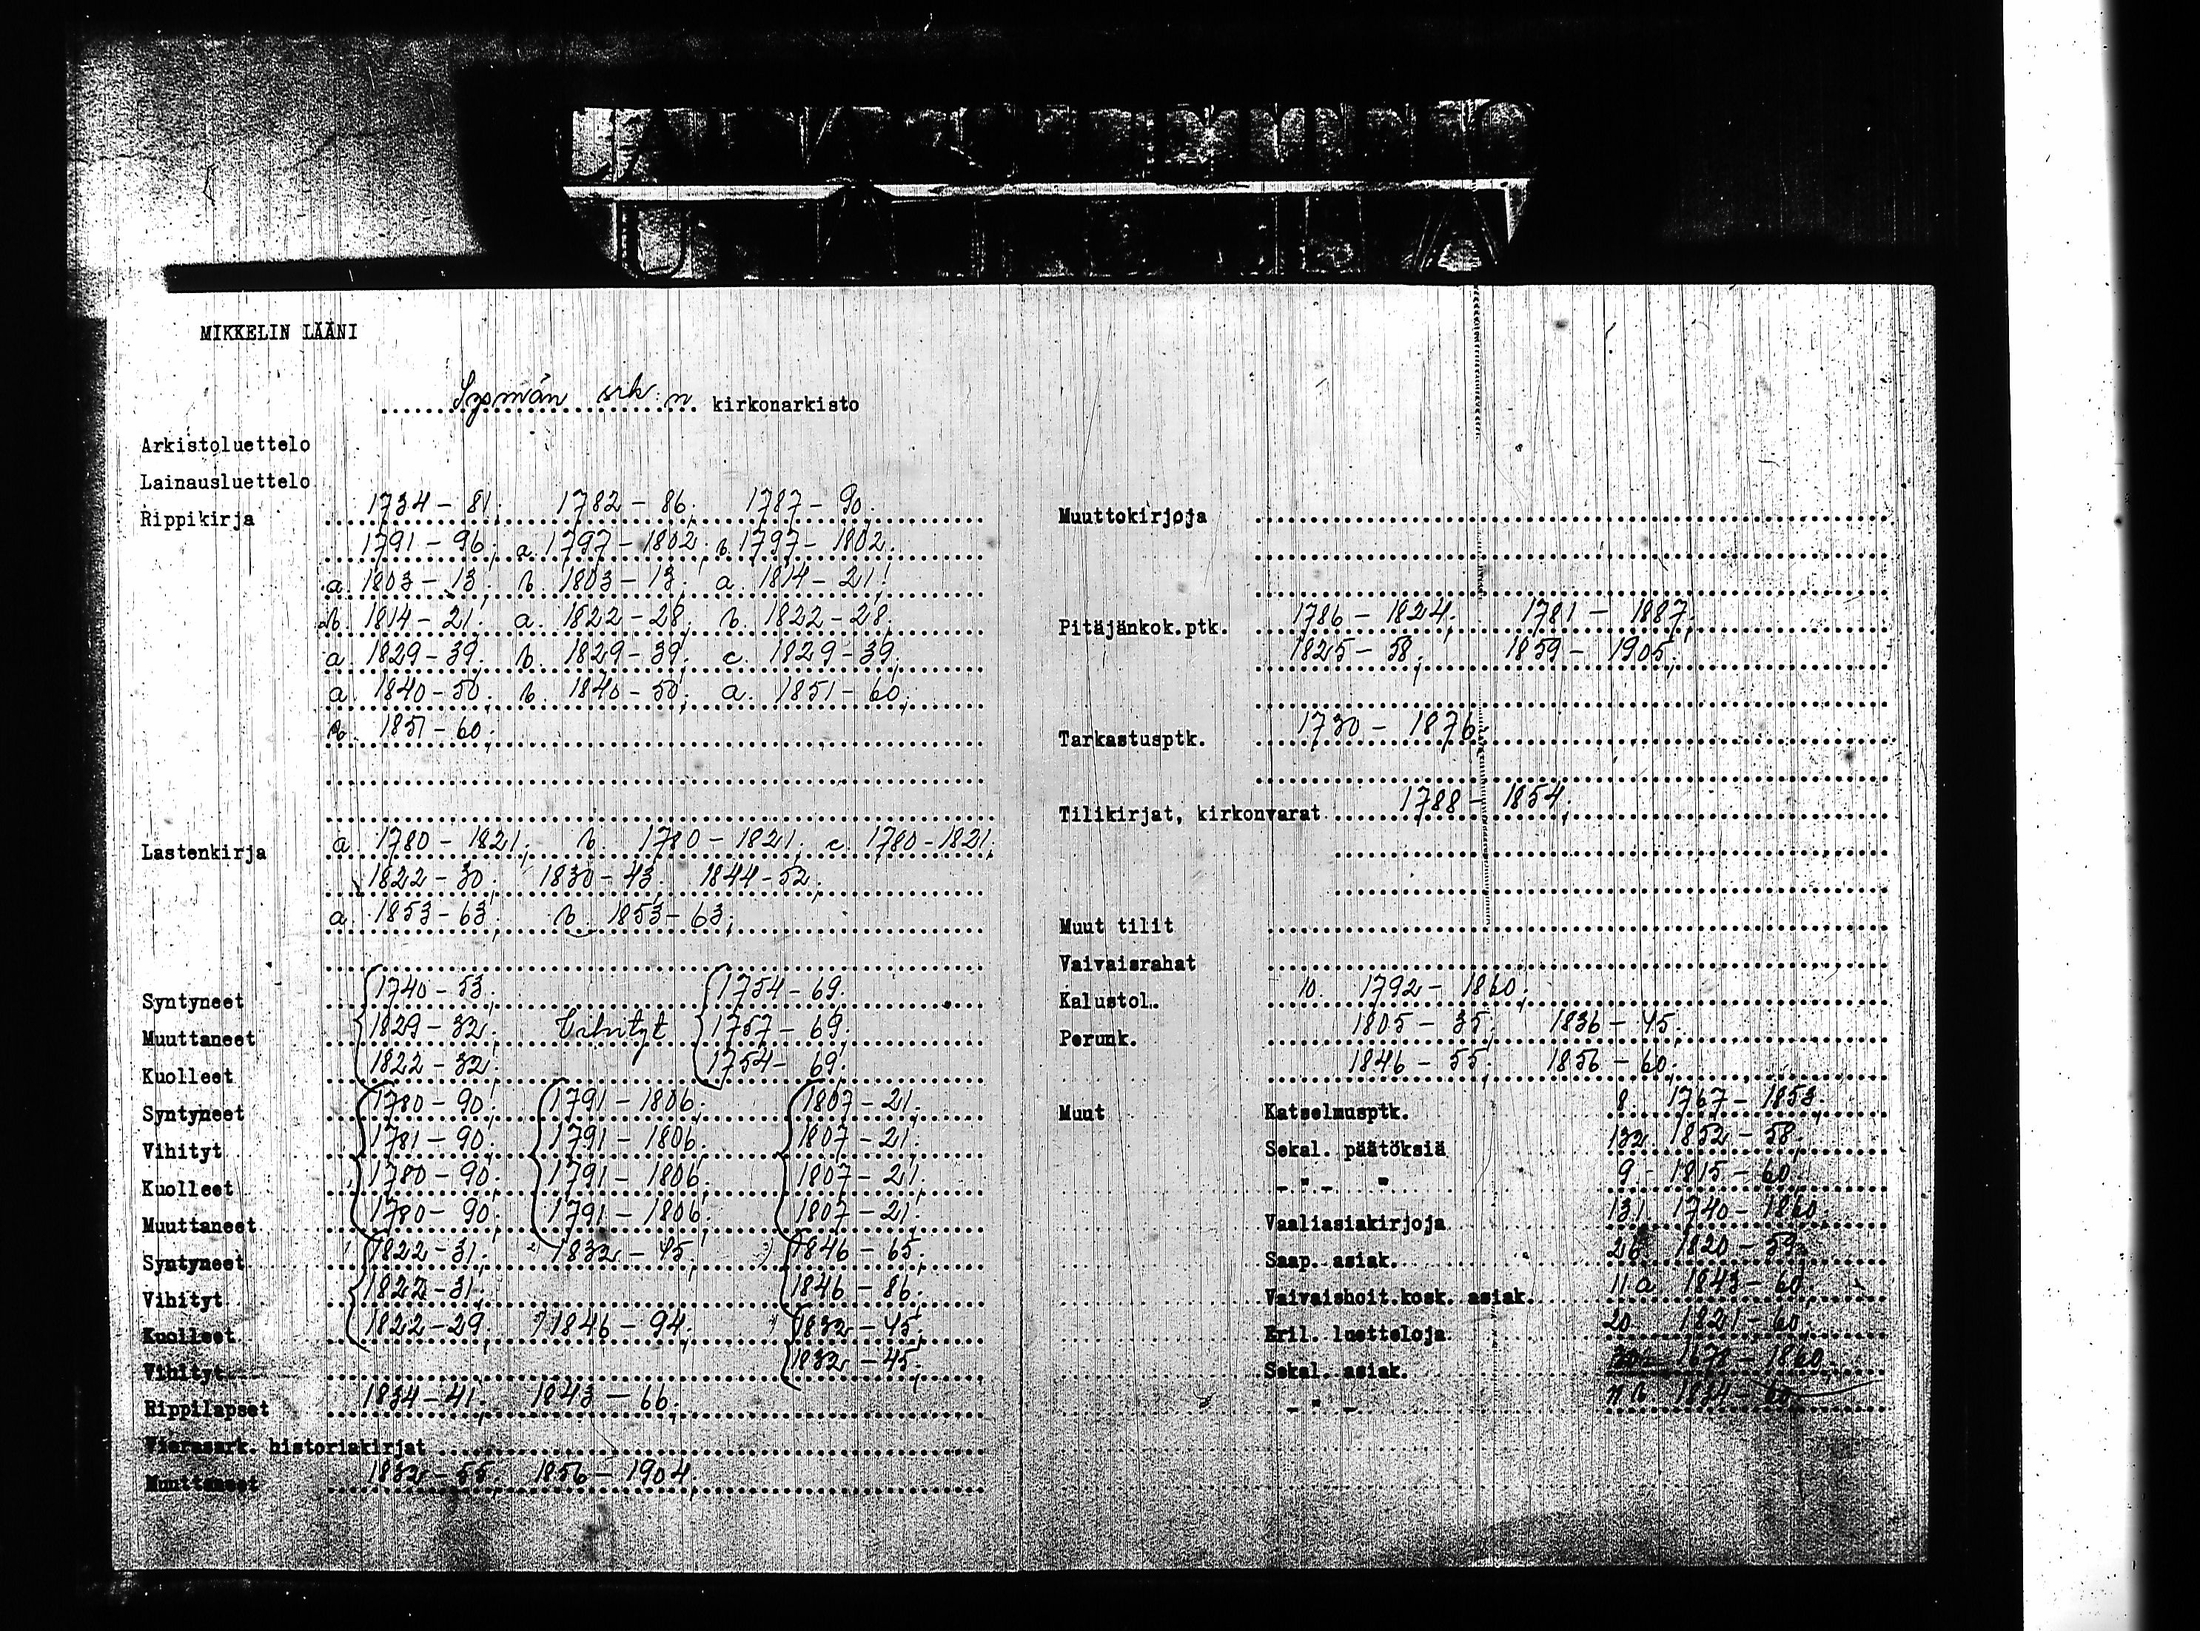 MIKKELIN LÄÄNI
Sysmän srk:n kirkonarkisto
Arkistoluettelo
Lainausluettelo
Rippikirja 1734 - 81; 1782 - 86; 1787 - 90;
1791 - 96; a. 1797 - 1802; b. 1797 - 1802;
a. 1803 - 13; b. 1803 - 13; a. 1814 - 21;
b. 1814 - 21; a. 1822 - 28; b. 1822 - 28;
a. 1829 - 39; b. 1829 - 39; c. 1829 - 39;
a. 1840 - 50; b. 1840 - 50; a. 1851 - 60;
b. 1851 - 60;
Lastenkirja a. 1780 - 1821; b. 1780 - 1821; c. 1780 - 1821;
1822 - 30; 1830 - 43; 1844 - 52;
a. 1853 - 63; b. 1853 - 63;
Syntyneet 1740 - 53; 1754 - 69;
Muuttaneet 1829 - 32; Vihityt 1757 - 69;
Kuolleet 1822 - 32; 1754 - 69;
Syntyneet 1780 - 90; 1791 - 1806; 1807 - 21;
Vihityt 1781 - 90; 1791 - 1806; 1807 - 21;
Kuolleet 1780 - 90; 1791 - 1806; 1807 - 21;
Muuttaneet 1780 - 90; 1791 - 1806; 1807 - 21;
Syntyneet 1822 - 31; 1832 - 45; 1846 - 65;
Vihityt 1822 - 31; 1846 - 86;
Kuolleet 1822 - 29; 1846 - 94; 1832 - 45;
Vihityt 1832 - 45;
Rippilapset 1834 - 41; 1843 - 66;
Vierassrk. historiakirjat
Muuttaneet 1832 - 55; 1856 - 1904;
Muuttokirjoja
Pitäjänkok.ptk. 1786 - 1824; 1781 - 1887;
1825 - 58; 1859 - 1905;
Tarkastusptk. 1730 - 1876;
Tilikirjat, kirkonvarat 1788 - 1854;
Muut tilit
Vaivaisrahat
Kalustol. 10. 1792 - 1860;
Perunk. 1805 - 35; 1836 - 45;
1846 - 55; 1856 - 60;
Muut Katselmusptk. 8 1767 - 1853;
Sekal. päätöksiä 132 1852 - 58;
- " - " 9 1815 - 60;
Vaaliasiakirjoja 131 1740 - 1860;
Saap. asiak. 26 1820 - 59;
Vaivaishoit.kosk. asiak. 11 a 1843 - 60
Eril. luetteloja 20 1821 - 60;
Sekal. asiak. 1678 - 1860;
- " -